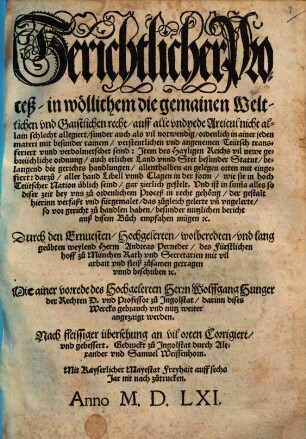 Gerichtlicher Pro
ceß / in wöllichem die gemainen Welt-
lichen vnd Gaistlichen recht / auff alle vnd yede Articul nicht al-
lain schlecht allegiert / sonder auch als vil notwendig / ordenlich in ainer jeden
materi mit besonder rainen / verstentlichen vnd angenemen Teutsch trans-
feriert vnnd verdolmetschet seind / Item des Hayligen Reichs vil newe ge-
breuchliche ordnung / auch etlicher Land vnnd Stet besonder Statut / be-
langend die gerichts handlungen / allenthalben an gelegen orten mit einge-
fiert: darzů / aller hand Libell vnnd Clagen in der form / wie sie in hoch
Teutscher Nation üblich seind / gar zierlich gestelt. Vnd ist in suma alles so
diser zeit bey vns zů ordenlichem Proceß in recht gehörig / der gestalt
hierinn verfaßt vnd fürgemalet / das zůgleich gelerte vñ vngelerte /
so vor gericht zů handlen haben / besonder nutzlichen bericht
auß disem Bůch empfahen mügen ꝛc.
Durch den Ernuesten / Hochgelerten / wolberedten / vnd lang
geübten weylend Herrn Andreas Perneder / des Fürstlichen
hoff zů München Rath vnd Secretarien mit vil
arbait vnd fleiß zůsamen getragen
vnnd beschriben ꝛc.
Mit ainer vorrede des Hochgelerten Herrn Wolffgang Hunger
der Rechten D. vnd Professor zů Ingolstat / darinn dises
Wercks gebrauch vnd nutz weiter
angezaigt werden.
Nach fleissiger übersehung an vil orten Corrigiert /
vnd gebessert. Gedruckt zů Ingolstat durch Ale-
xander vnd Samuel Weissenhorn.
Mit Kayserlicher Mayestat Freyhait auff sechs
Jar nit nach zůtrucken.
Anno M. D. LXI.